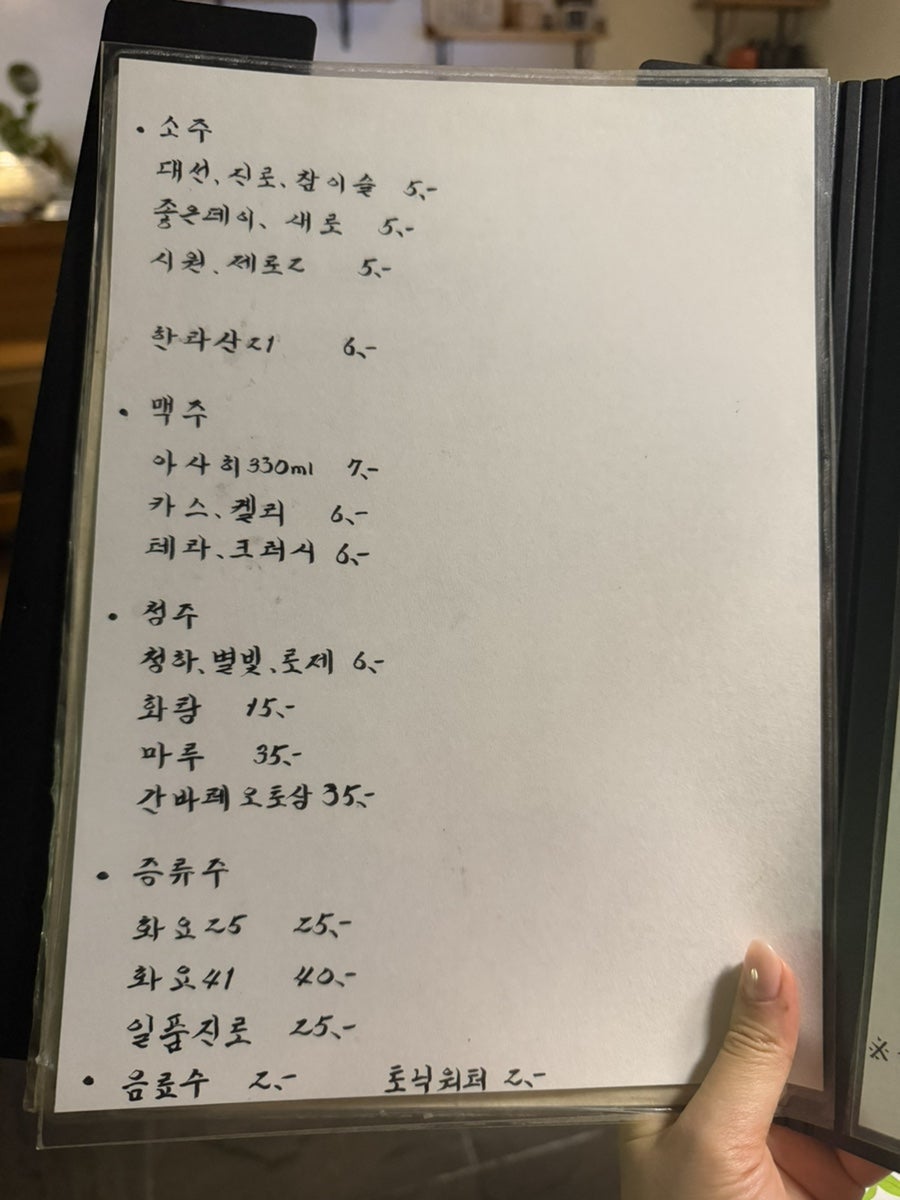 • 소주
대선、진로、참이슬 5、-
좋은데이、 새로 5、-
시원、제로2 5、-
한라산21 6、-
• 맥주
아사히 330ml 7、-
카스、켈리 6、-
테라、크러시 6、-
• 청주
청하、별빛、로제 6、-
화랑 15、-
마루 35、-
간바레 오토상 35、-
• 증류주
화요25 25、-
화요41 40、-
일품진로 25、-
• 음료수 2、- 토닉워터 2、-
※